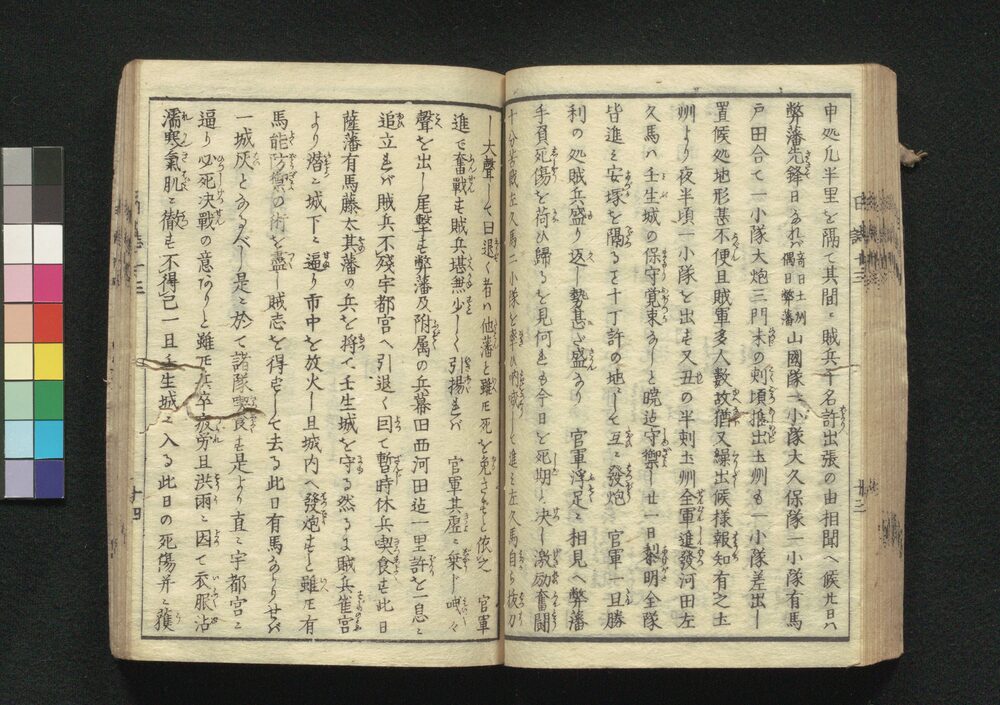 申処凡半里を隔て其間ニ賊兵千名許出張の由相聞へ候廿日ハ
弊藩先鋒日なれバ斎日土州偶日弊藩山國隊一小隊大久保隊一小隊有馬
戸田合て一小隊大炮三門未の剋頃推出土州も一小隊差出し
置候処地形甚不便且賊軍多人数故猶又繰出候様報知有之土
州より夜半頃一小隊を出も又丑の半刺土州全軍進發河田左
久馬ハ壬生城の保守覚束なしと暁迄守禦し廿一日黎明全隊
皆進ミ安塚を隔るを十丁許の地ニして互ニ發炮 官軍一旦勝
利の処賊兵盛り返し勢甚ゞ盛なり 官軍浮足ニ相見へ弊藩
手負死傷を荷ひ歸るを見何も今日を死期と決し激励奮闘
十分苦戦左久馬二小隊を率ひ吶喊して進ミ左久馬自ら抜刀
し大聲して曰退く者ハ他藩と雖𪜈死を免さずと依之 官軍
進で奮戰も賊兵甚無少しく引揚れバ 官軍其虚ニ乗し呐々
聲を出し尾撃も弊藩及附属の兵幕田西河田迄一里許を一息ニ
追立れバ賊兵不殘宇都宮へ引退く因て暫時休兵喫食も此日
薩藩有馬藤太其藩の兵を将て壬生城を守る然るに賊兵雀宮
より潜ニ城下ニ逼り市中を放火し且城内へ發炮もと雖𪜈有
馬能防禦の術を盡し賊志を得ずして去る此日有馬なかりせバ
一城灰となるべし是ニ於て諸隊喫食も是より直ニ宇都宮ニ
逼り必死決戰の意なりと雖𪜈兵卒疲労且洪雨ニ因て衣服沾
濡寒氣肌ニ徹も不得已一旦壬生城ニ入る此日の死傷并ニ獲
日誌十三
廿三
十四